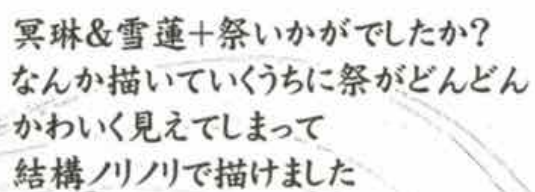 冥琳&雪蓮+祭いかがでしたか?
なんか描いていくうちに祭がどんどん
かわいく見えてしまって
結構ノリノリで描けました